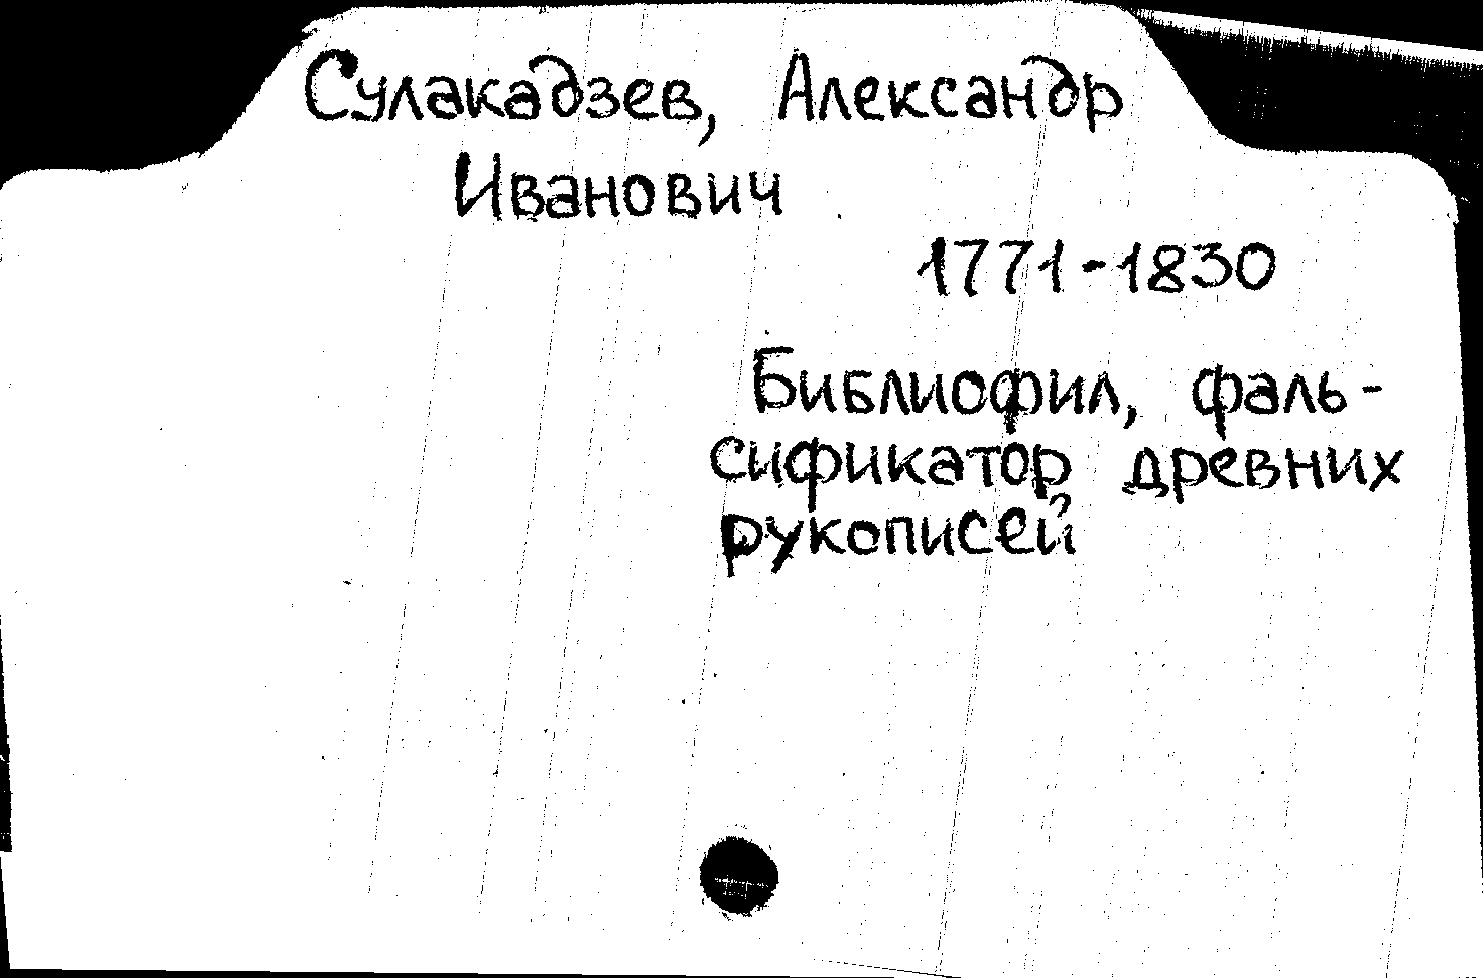 Сулакадзев, Александр
Иванович
1771-1830
Библиофил, фаль-
сификатор древних
рукописей